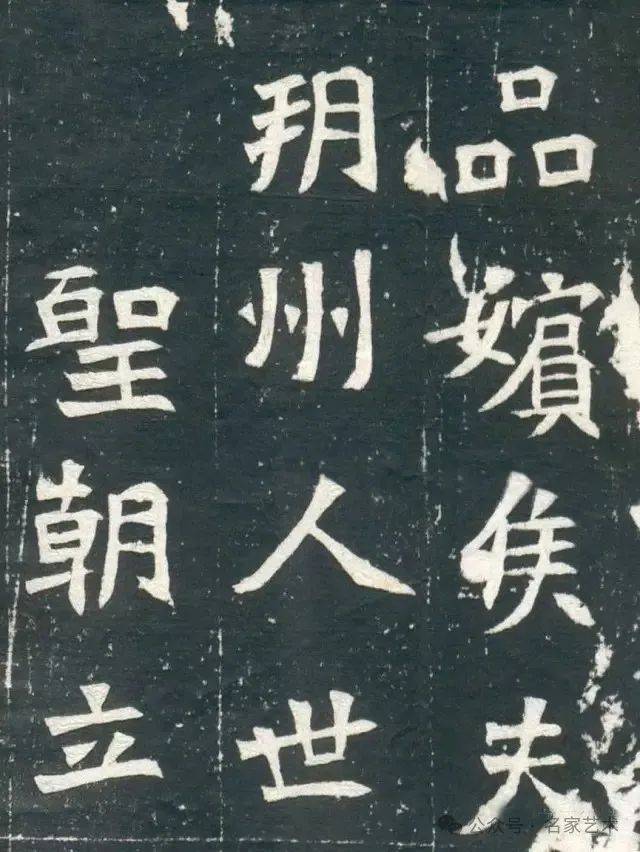 品嬪侯夫
朔州人世
聖朝立
公众号 · 名家艺术